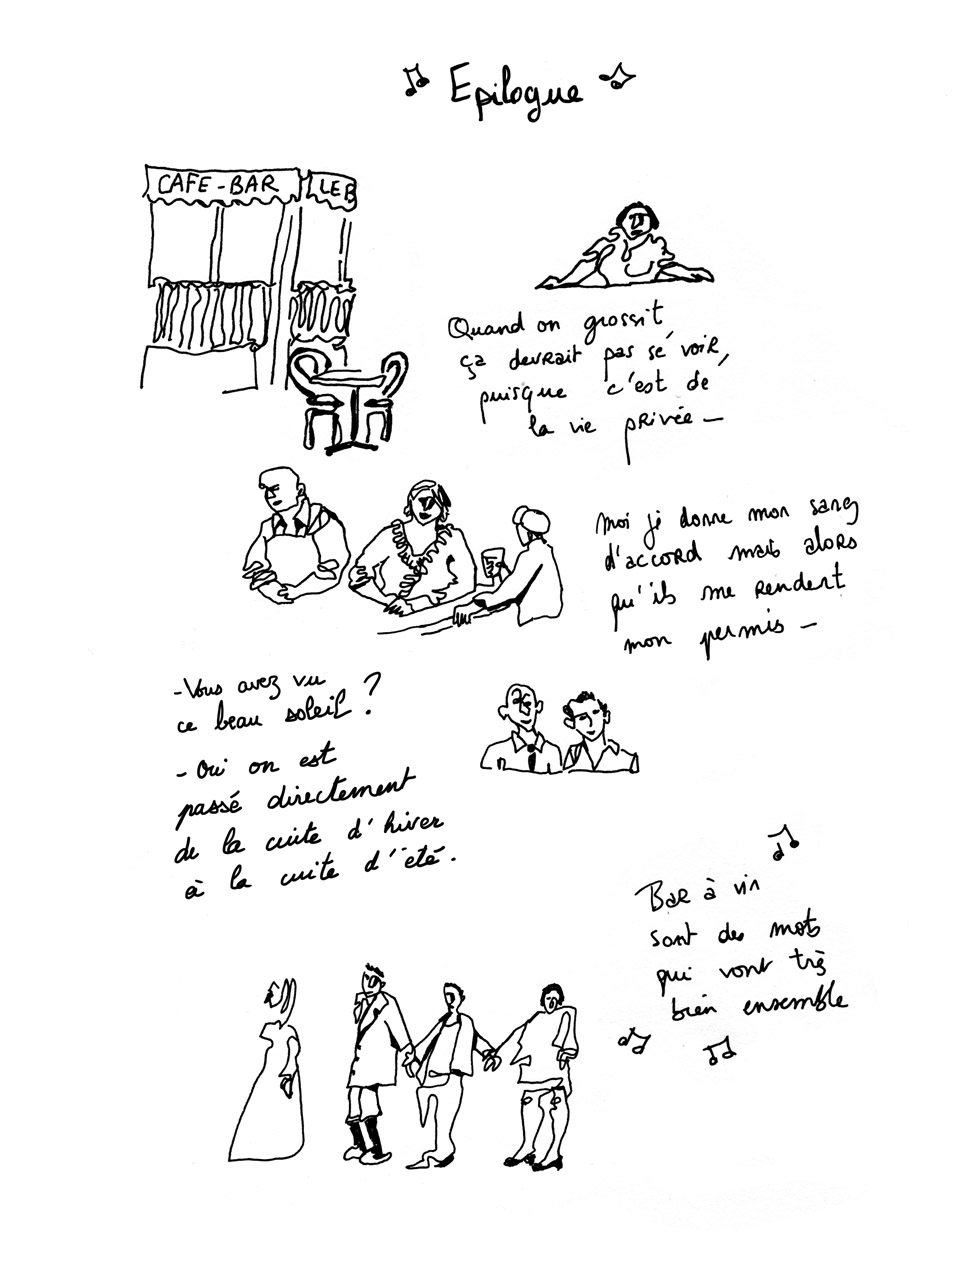 Epilogue
CAFE-BAR
LE B
Quand on grossit
ça devrait pas se voir,
puisque c'est de
la vie privée —
Moi je donne mon sang
d'accord mais alors
qu'ils me rendent
mon permis —
- Vous avez vu
ce beau soleil ?
- Oui on est
passé directement
de la cuite d'hiver
à la cuite d'été.
Bar à vin
sont des mots
qui vont très
bien ensemble